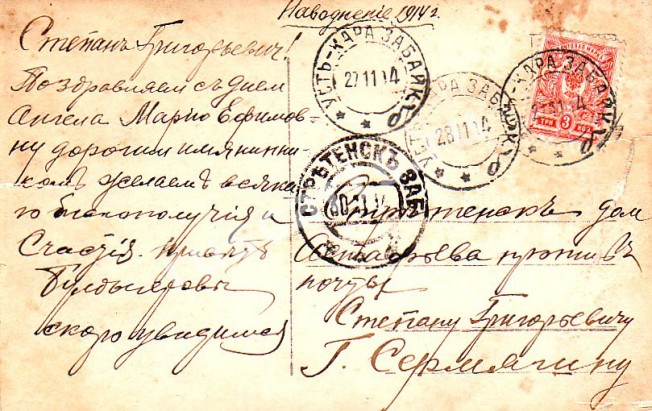 Наводненіе 1914 г.
Степанъ Григорьевичъ!
Поздравляем съ днем
Ангела Марію Ефимов-
ну дорогим имянинни-
комъ желаем всяка-
го благополучія и
Счастія. Привѣтъ
скоро увидимся
УСТЬ-КАРА ЗАБАЙК.
27 11 14
УСТЬ-КАРА ЗАБАЙК.
28 11 14
КАРА ЗАБАЙК.
СРѢТЕНСКЪ ЗАБ.
30 11 14
ТРИ 3 КОП
Стрѣтенскъ дом
против
почты
Степану Григорьевичу
Г. Сермягину